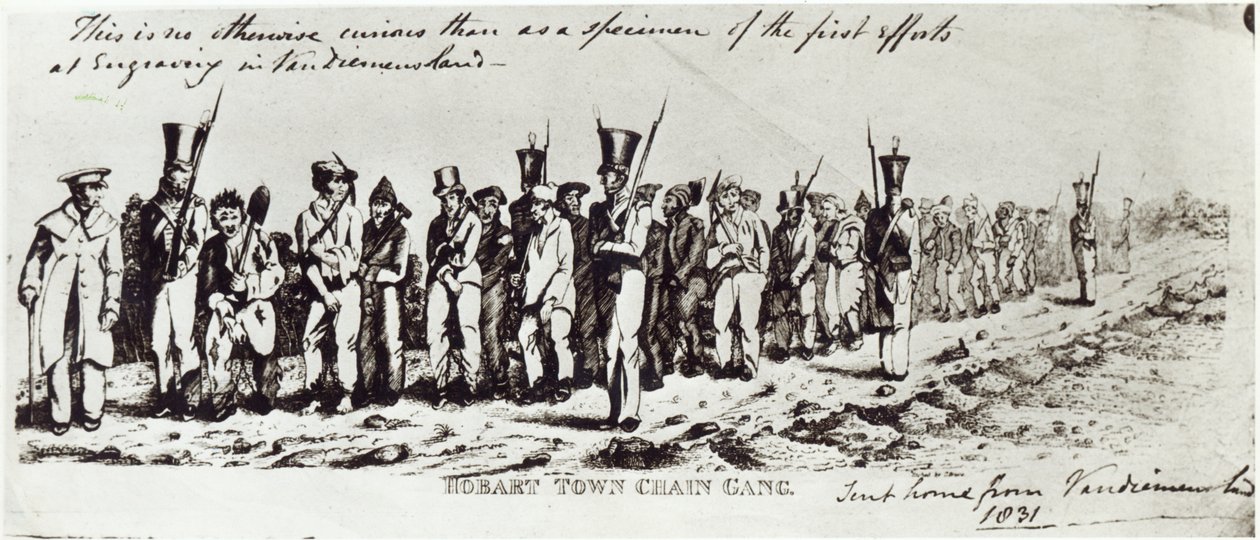 This is no otherwise curious than as a specimen of the first Efforts
at Engraving in VanDiemensland —
HOBART TOWN CHAIN GANG.
Sent home from Vandiemens land
1831